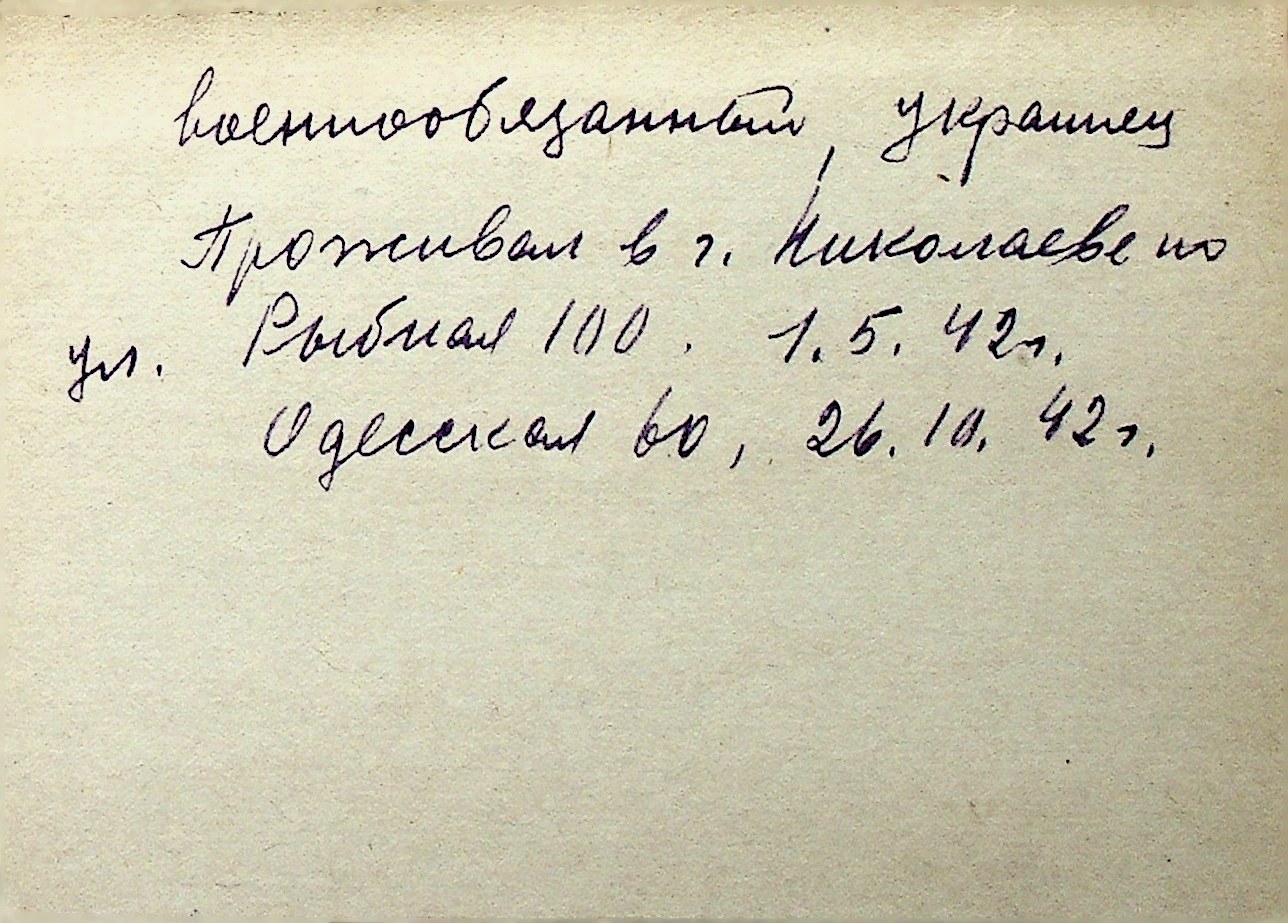 военнообязанный, украинец
Проживал в г. Николаеве по
ул. Рыбная 100. 1.5.42г.
Одесская 60, 26.10.42г.